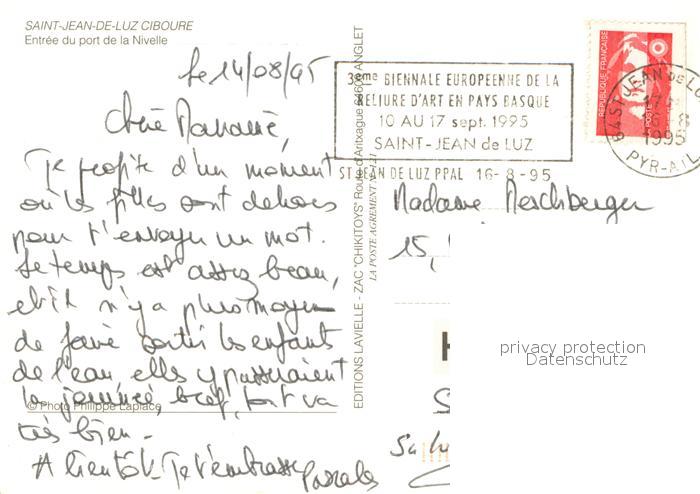 SAINT-JEAN-DE-LUZ CIBOURE
Entrée du port de la Nivelle
Le 14/08/95
Chère Mamané,
Je profite d'un moment
où les filles sont dehors
pour t'envoyer un mot.
Le temps est assez beau,
et il n'y a plus moyen
de faire sortir les enfants
de l'eau, elles y passeraient
la journée, bref, tout va
très bien -
A bientôt. Je t'embrasse
Pascale
© Photo Philippe Laplace
EDITIONS LAVIELLE - ZAC "CHIKITOYS" Route d'Aritxague 64600 ANGLET
LA POSTE AGREMENT
3eme BIENNALE EUROPEENNE DE LA
RELIURE D'ART EN PAYS BASQUE
10 AU 17 sept. 1995
SAINT-JEAN de LUZ
ST JEAN DE LUZ PPAL 16-8-95
REPUBLIQUE FRANÇAISE
64 ST JEAN DE LU
17
16-8
1995
PYR-ATL
Madame Meschberger
15,
privacy protection
Datenschutz